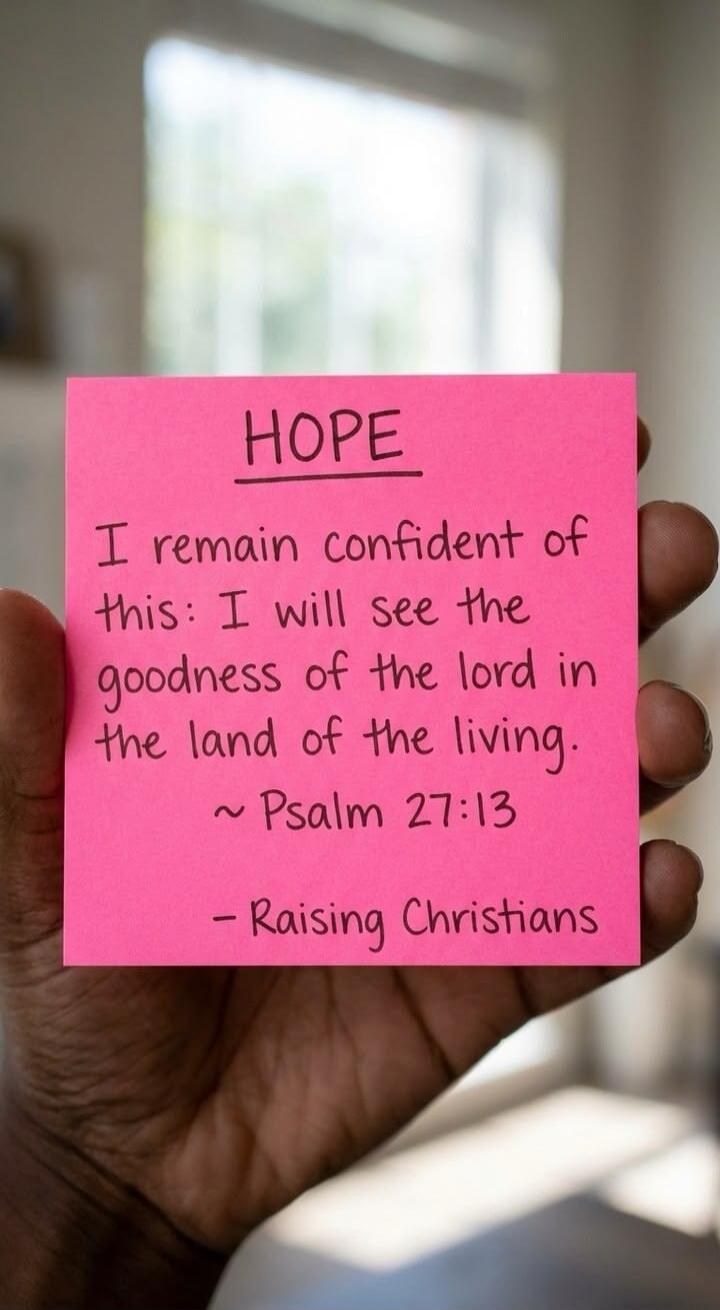 HOPE
I remain confident of
this: I will see the
goodness of the lord in
the land of the living.
~ Psalm 27:13
- Raising Christians